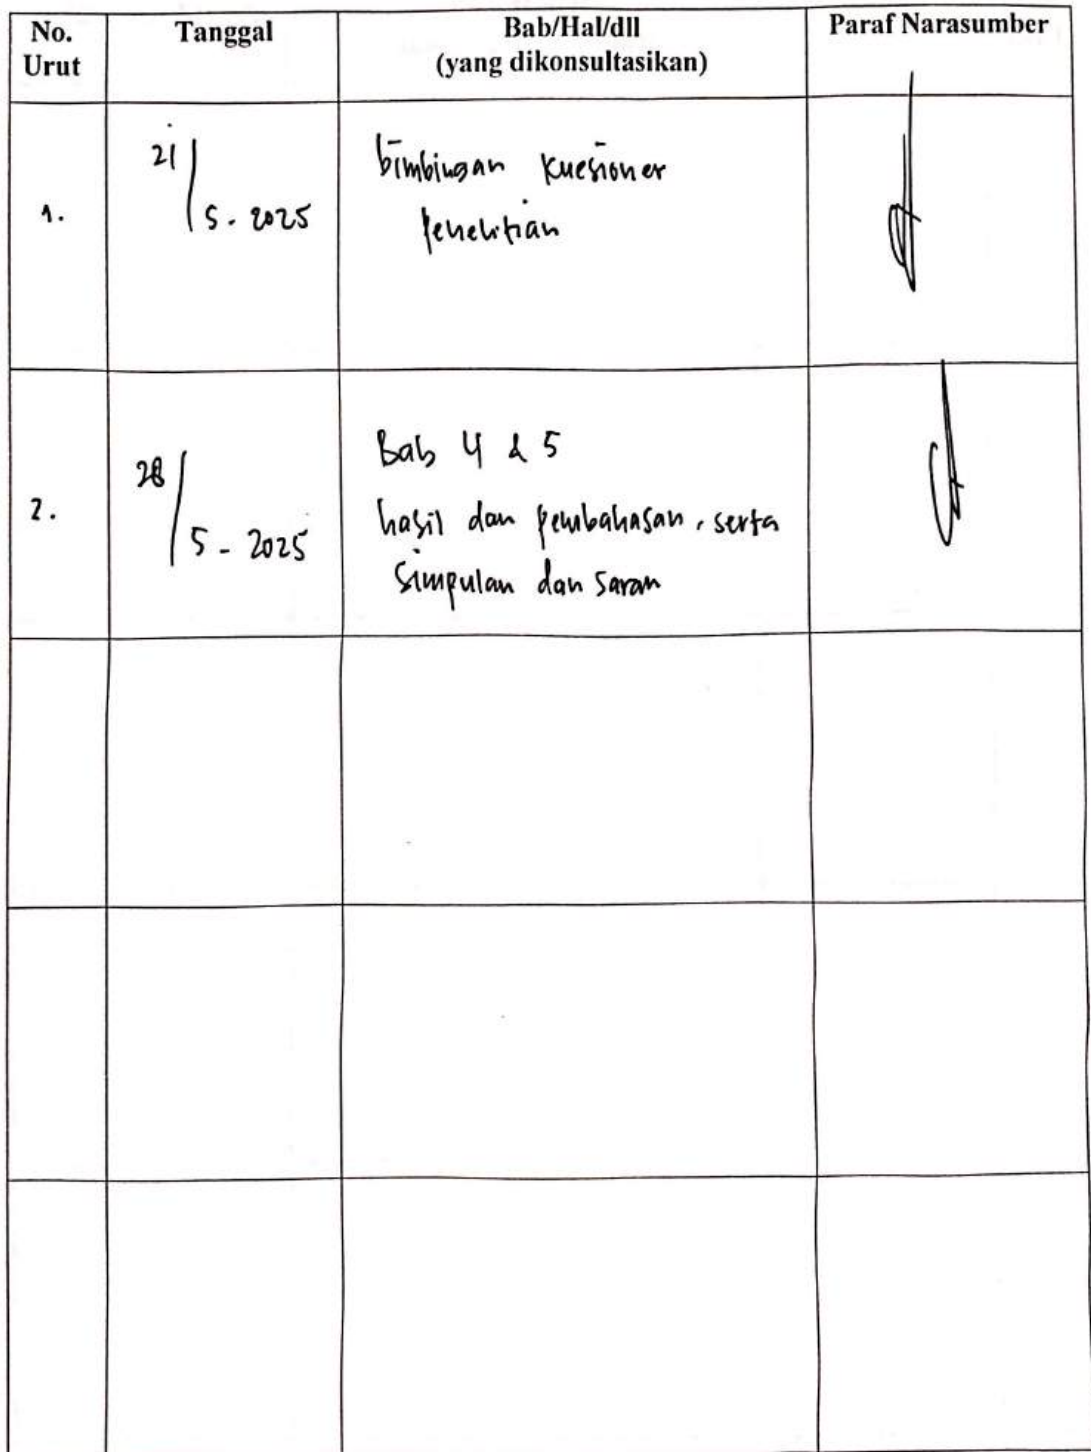 No. Urut
Tanggal
Bab/Hal/dll
(yang dikonsultasikan)
Paraf Narasumber
1.
21/5-2025
bimbingan kuesioner
penelitian
2.
28/5-2025
Bab 4 & 5
hasil dan pembahasan, serta
Simpulan dan saran